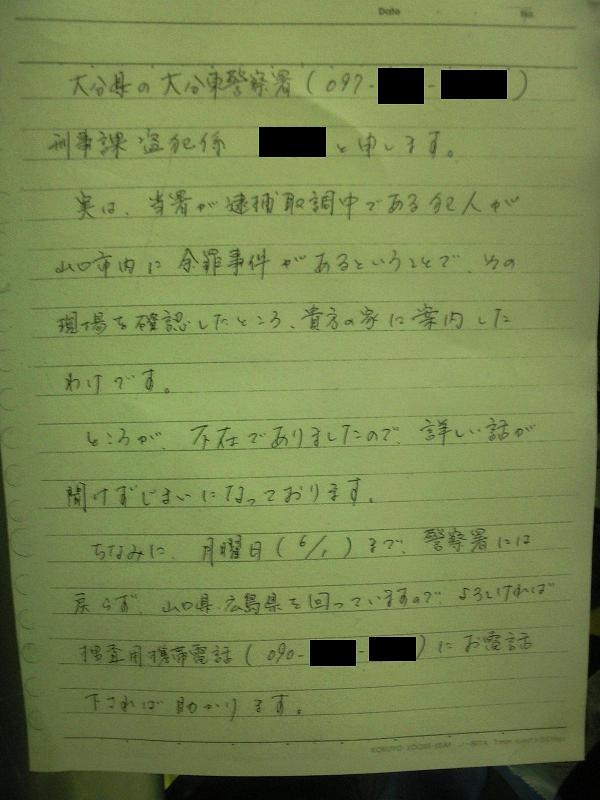 Date
No.
大分県の大分東警察署(097- - )
刑事課盗犯係 と申します。
実は、当署が逮捕取調中である犯人が
山口市内に余罪事件があるということで、その
現場を確認したところ、貴方の家に案内した
わけです。
ところが、不在でありましたので、詳しい話が
聞けずじまいになっております。
ちなみに、月曜日(6/1)まで、警察署には
戻らず、山口県、広島県を回っていますので、よろしければ
捜査用携帯電話(090- - )にお電話
下されば助かります。
KOKUYO LOOSE-LEAF